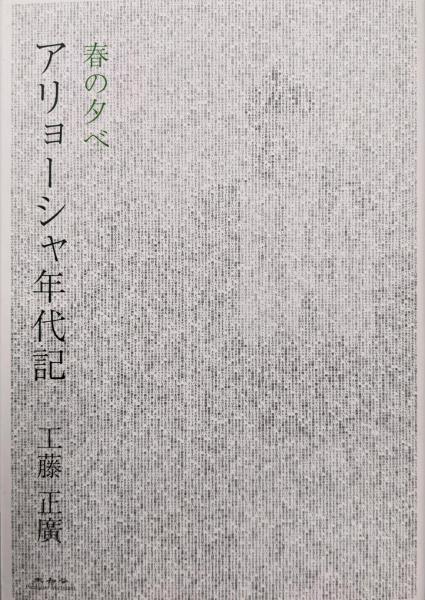 春の夕べ
アリョーシャ年代記
工藤正廣